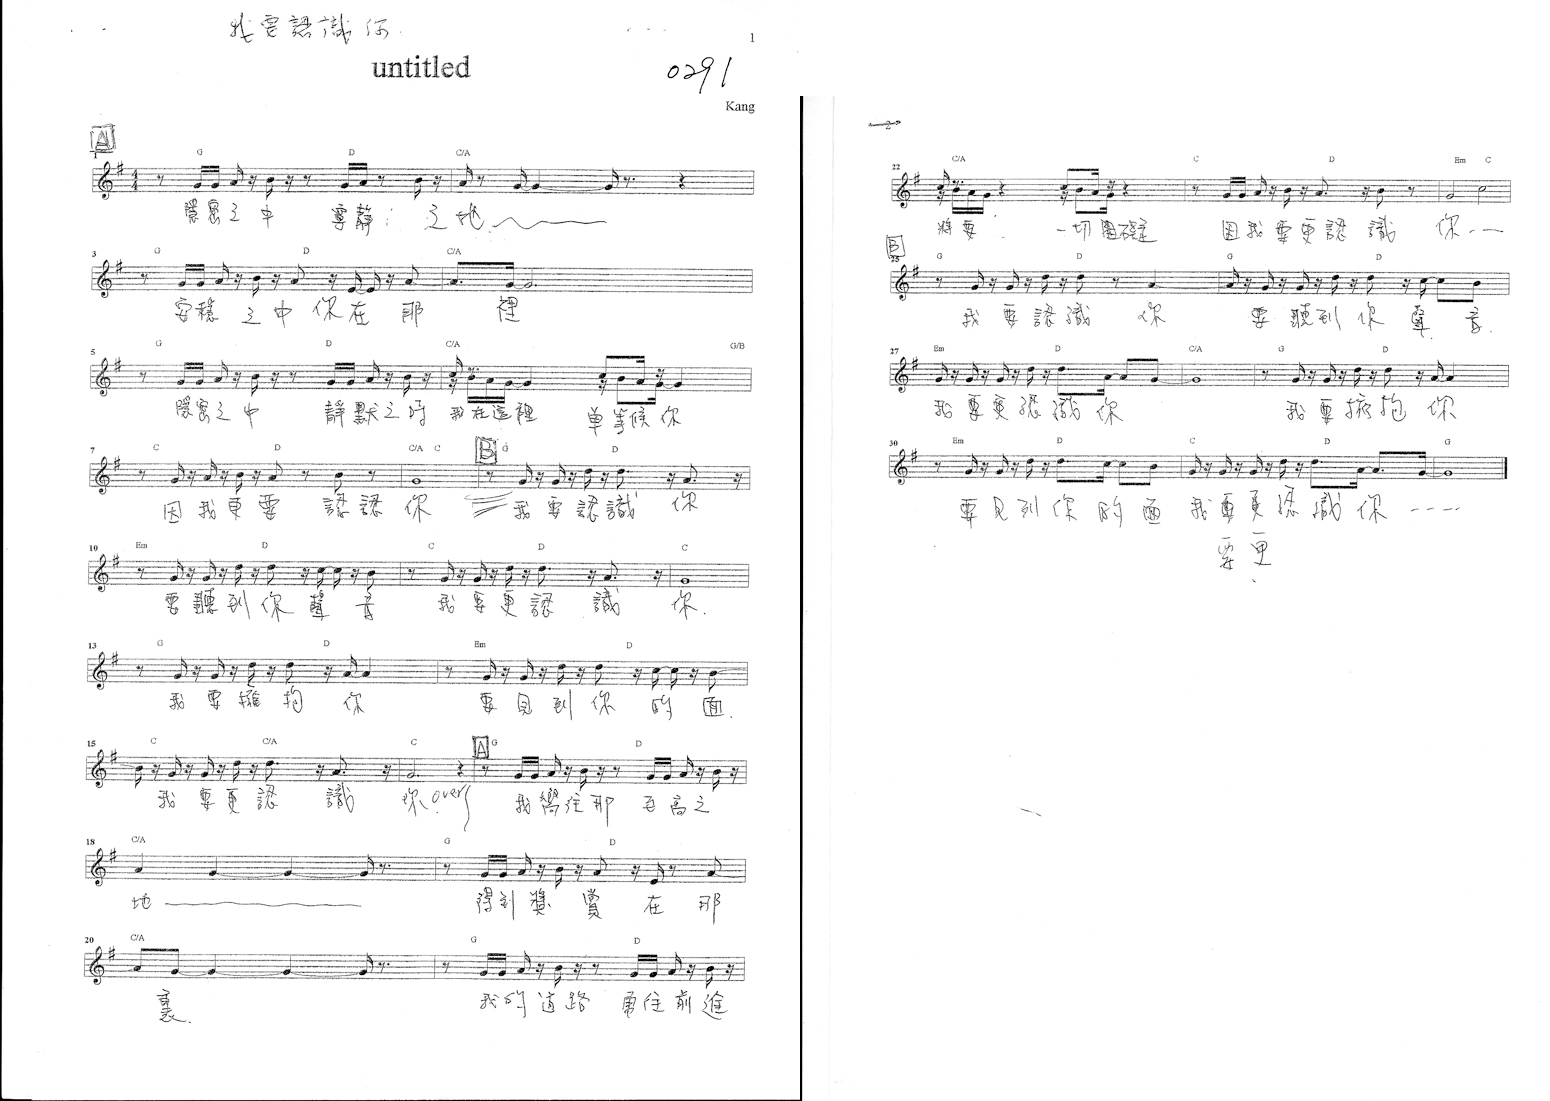 我要認識你
1
untitled
0291
Kang
A
1
G D C/A
隱密之中 寧靜 之地
3
G D C/A
安穩之中你在那裡
5
G D C/A G/B
隱密之中 靜默之時 我在這裡 单等候你
7
C D C/A C B G D
因我更要 認認你 我要認識你
10
Em D C D C
要聽到你聲音 我要更認識你.
13
G D Em D
我要擁抱你 要見到你的面.
15
C C/A C A G D
我要更認識你. over 我嚮往那至高之
18
C/A G D
地 得到獎賞在那
20
C/A G D
裏. 我的道路 勇往前進
2
22
C/A C D Em C
將要 一切圍礙 因我要更認識你
B
25
G D A G D
我要認識你 要聽到你聲音.
27
Em D C/A G D
我要更認識你 我要擁抱你
30
Em D C D G
要見到你的面 我要更認識你
要更